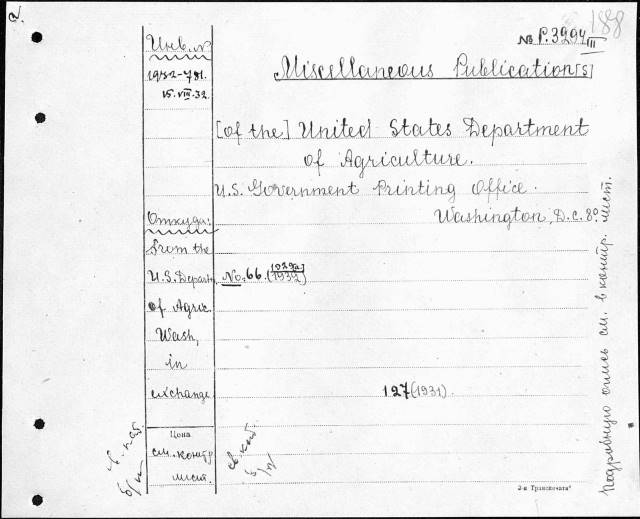 188
Инв. №
№ P.3294 III
1932-781.
15.VIII.32.
Miscellaneous Publication[s]
[of the] United States Department
of Agriculture.
U.S. Government Printing Office.
Washington, D.C. 8°
Откуда:
from the
U.S. Departm.
of Agric.
Wash,
in
exchange
No. 66. (1929a) (1932)
127 (1931).
Цена
см. контр
лист.
Подробную опись см. в контр. лист.